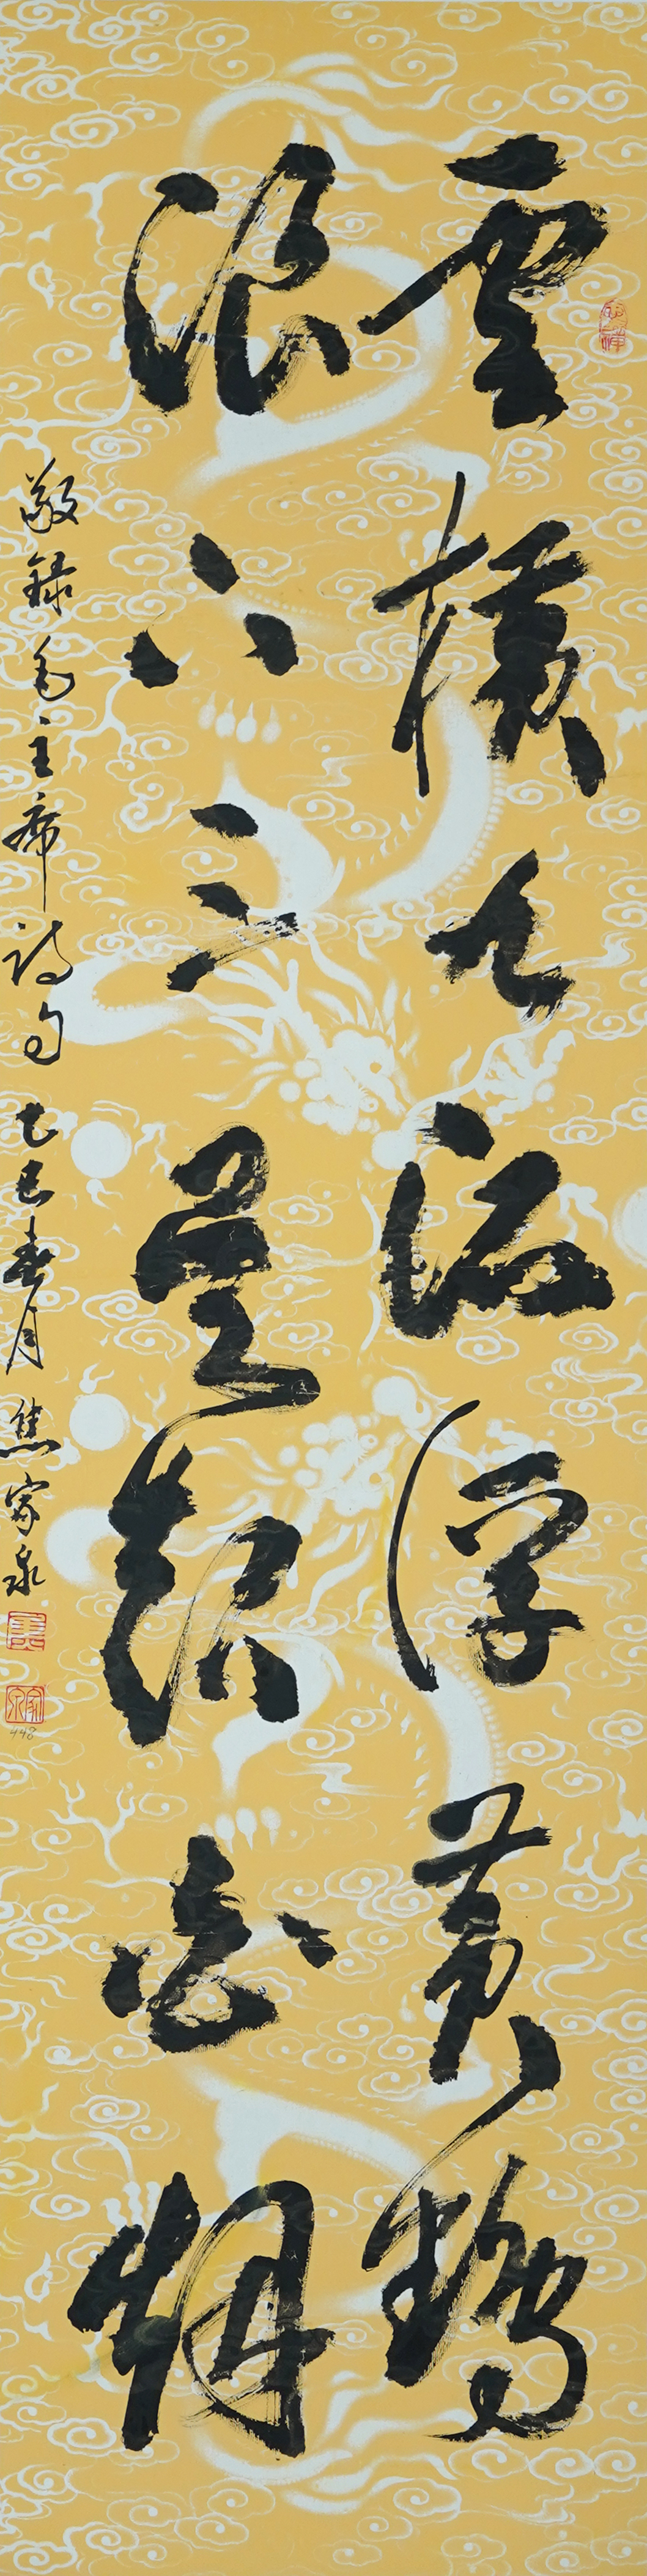 雲橫九派浮黃鶴
浪下三吳起白烟
敬錄毛主席詩句 乙巳春月 焦家泉
448